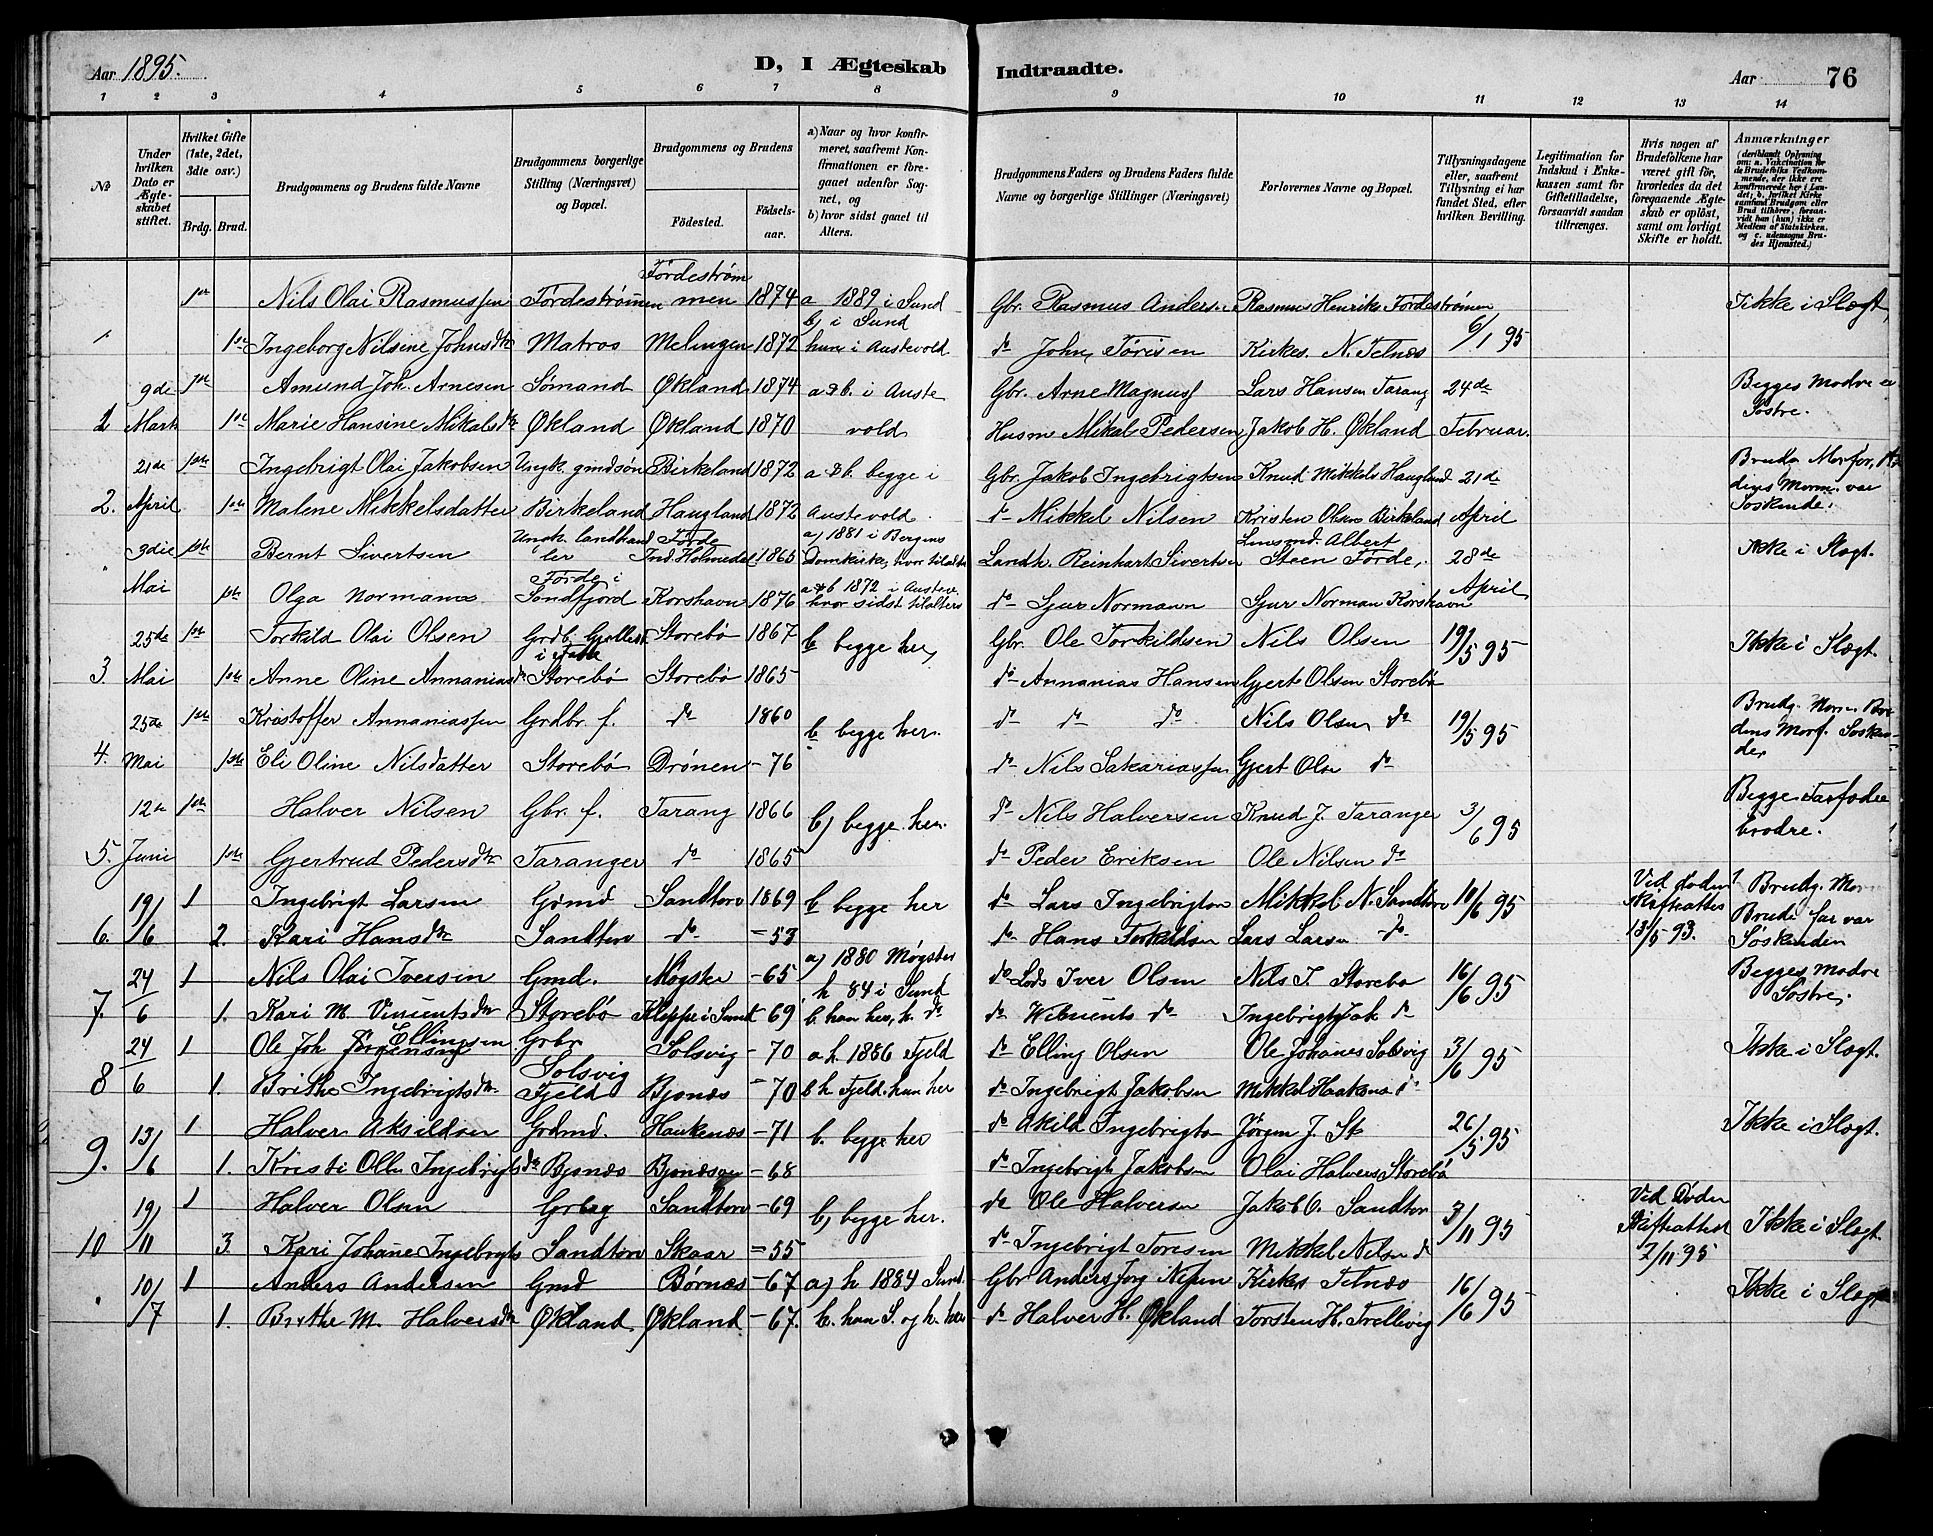 Aar 1895.
D, I Ægteskab Indtraadte.
Aar 76
1 2 3 4 5 6 7 8 9 10 11 12 13 14
No
Under hvilken Dato er Ægteskabet stiftet.
Hvilket Gifte (1ste, 2det, 3die osv.)
Brdg. Brud.
Brudgommens og Brudens fulde Navne
Brudgommens borgerlige Stilling (Næringsvei) og Bopæl.
Brudgommens og Brudens
Födested.
Födselsaar.
a) Naar og hvor konfirmeret, saafremt Konfirmationen er foregaaet udenfor Sognet, og
b) hvor sidst gaaet til Alters.
Brudgommens Faders og Brudens Faders fulde Navne og borgerlige Stillinger (Næringsvei)
Forlovernes Navne og Bopæl.
Tillysningsdagene eller, saafremt Tillysning ei har fundet Sted, efter hvilken Bevilling.
Legitimation for Indskud i Enkekassen samt for Giftetilladelse, forsaavidt saadan tiltrænges.
Hvis nogen af Brudefolkene har været gift för, hvorledes da det foregaaende Ægteskab er oplöst, samt om lovligt Skifte er holdt.
Anmærkninger
(deriblandt Oplysning om: a. Vakcination for de Brudefolks Vedkommende, der ikke ere konfirmerede her i Landet; b. hvilket Kirkesamfund Brudgom eller Brud tilhörer, forsaavidt han (hun) ikke er Medlem af Statskirken, og c. udensogns Brudes Hjemsted.)
1ste Nils Olai Rasmussen Tørdestrømmen Førdestrømmen 1874 a 1889 i Sund b) i Sund Gbr. Rasmus Anders Rasmus Henriks. Førdestrømen Ikke i Slægt
1 1ste Ingeborg Nilsine Johnsdtr Matros Melingen 1872 hun i Austevold do John Tørisen Kirkes. N. Telnæs 6/1 95
9de 1ste Amund Joh. Arnesen Sømand Økland 1874 a & b. i Auste Gbr. Arne Magnus Lars Hansen Tarang 24de Begges Modre er Søstre.
2 Marts 1ste Marie Hansine Mikalsdtr Økland Økland 1870 vold Husm Mikal Pedersen Jakob H. Økland Februar.
21de 1ste Ingebrigt Olai Jakobsen Ungk. gmdsøn Birkeland 1872 a & b. begge i Gbr. Jakob Ingebrigtsen Knud Mikkels. Haugland 21de
2. April 1ste Malene Mikkelsdatter Birkeland Haugland 1872 Austevold do Mikkel Nilsen Kristen Olsen Birkeland April Søskende.
9die 1ste Bernt Sivertsen Ungk. landhandler Førde Ind. Holmedal 1865 a) 1881 i Bergens Domkirke, Landh. Reinhart Sivertsen Lensmd. Albert Steen Førde, 28de Ikke i Slægt.
Mai 1ste Olga Normann Førde i Søndfjord Korshavn 1876 a & b 1872 i Austev. hvor sidst tilalters do Sjur Normann Sjur Norman Korshavn April
25de 1ste Torkild Olai Olsen Storebø 1867 b begge her Gbr. Ole Torkildsen Nils Olsen 19/5 95 Ikke i Slægt.
3. Mai 1ste Anne Oline Annaniasdtr Storebø Storebø 1865 do Annanias Hansen Gjert Olsen Storebø
25de 1ste Kristoffer Annaniassen Grdbr. f. do 1860 b begge her. do do do Nils Olsen do 19/5 95
4. Mai 1ste Eli Oline Nilsdatter Storebø Drønen -76 do Nils Sakariassen Gjert Olsn do
12te 1ste Halver Nilsen Gbr. f. Tarang 1866 b) begge her. do Nils Halversen Knud J. Taranger 3/6 95 Begges Farfædre brødre.
5. Juni 1ste Gjertrud Pedersdtr Taranger do 1865 do Peder Eriksen Ole Nilsen do
19/6 1 Ingebrigt Larsen Gdmd Sandtorv 1869 b begge her do Lars Ingebrigtsn Mikkel N. Sandtorv 10/6 95 Ved døden Skifteattes 13/5 93.
6. 2. Kari Hansdtr Sandtorv do -53 do Hans Torkildsen Lars Larsn do Brudg. Mor Bruds far var Søskenden
24/6 1 Nils Olai Iversen Gmd. Møgster -65 a) 1880 Møgster h 84 i Sund do Lods Iver Olsen Nils J. Storebø 16/6 95 Begges Modre Søstre.
7. 1. Kari M. Vinsentsdtr Storebø Kleppe i Sund -69 b. han her, h. do do do Ingebrigt Jak do
24/6 1 Ole Joh Jørgensen Ellingsen Grbr Solsvig -70 a h 1886 Fjeld do Elling Olsen Ole Johanes Solsvig 3/6 95 Ikke i Slægt.
8 1. Brithe Ingebrigtsdtr Solsvig Fjeld Bjonæs -70 b h Fjeld. hun her do Ingebrigt Jakobsen Mikkel Haakons do
13/6 1 Halver Aksildsen Grdmd. Haukenæs -71 b. begge her do Akild Ingebrigtsn Jørgen J. St. 26/5 95 Ikke i Slægt.
9. 1. Kristi Ingebrigtsdtr Bjonæs Bjonæs -68 do Ingebrigt Jakobsen Olai Halvers Storebø
19/11 1 Halver Olsen Sandtorv -69 b) begge her. do Ole Halversen Jakob O. Sandtorv 3/11 95 Ved Døden Skifteattest 2/11 95 Ikke i Slægt
10 3. Kari Johane Ingebrigts Sandtorv Skaar -55 do Ingebrigt Toresen Mikkel Nilsen do
10/7 1 Anders Andersen Gmd Børnæs -67 a) h 1884 Sund. Gbr Anders Jørg Nilsen Kirkes Telnæs 16/6 95 Ikke i Slægt
1. Brithe M. Halversdtr Økland Økland -67. b. han S. og h. her do Halver H. Økland Torsten H. Trellevig